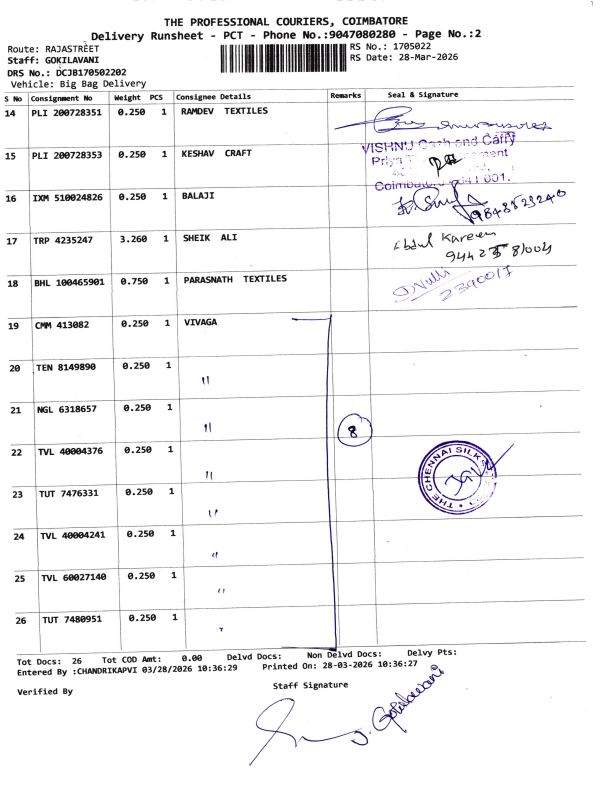 THE PROFESSIONAL COURIERS, COIMBATORE
Delivery Runsheet - PCT - Phone No.:9047080280 - Page No.:2
Route: RAJASTREET
RS No.: 1705022
Staff: GOKILAVANI
RS Date: 28-Mar-2026
DRS No.: DCJB170502202
Vehicle: Big Bag Delivery
S No Consignment No Weight PCS Consignee Details Remarks Seal & Signature
14 PLI 200728351 0.250 1 RAMDEV TEXTILES
15 PLI 200728353 0.250 1 KESHAV CRAFT
VISHNU Cash and Carry
Coimbatore 641 001.
16 IXM 510024826 0.250 1 BALAJI
17 TRP 4235247 3.260 1 SHEIK ALI
Abdul Kareem
18 BHL 100465901 0.750 1 PARASNATH TEXTILES
2390017
19 CMM 413082 0.250 1 VIVAGA
20 TEN 8149890 0.250 1 "
21 NGL 6318657 0.250 1 "
8
22 TVL 40004376 0.250 1 "
THE CHENNAI SILK
23 TUT 7476331 0.250 1 "
24 TVL 40004241 0.250 1 "
25 TVL 60027140 0.250 1 "
26 TUT 7480951 0.250 1 "
Tot Docs: 26 Tot COD Amt: 0.00 Delvd Docs: Non Delvd Docs: Delvy Pts:
Entered By :CHANDRIKAPVI 03/28/2026 10:36:29 Printed On: 28-03-2026 10:36:27
Verified By
Staff Signature
J. Gokilavani